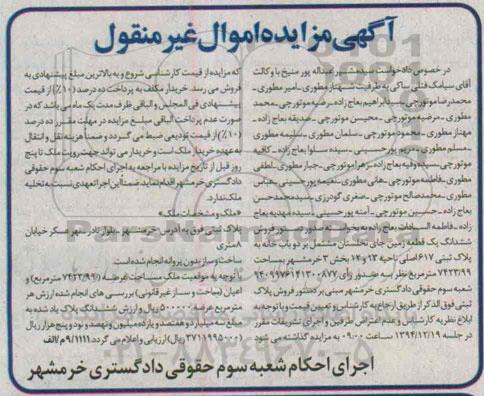 آگهی مزایده اموال غیر منقول
در خصوص دادخواست سید شبیر عبداله پور منیخ با وکالت
آقای سیامک فتلی ساکی به طرفیت مطوری ـ امیر مطوری ـ
محمدرضا مورتچی ـ سید ابراهیم بعاج زاده ـ رضیه مورتچی ـ محمد
مطوری ـ مرضیه مورتچی ـ محیسن مورتچی ـ صدیقه بعاج زاده ـ
مهناز مطوری ـ محمود مورتچی ـ سلمان مطوری ـ سلیمه مطوری
مسلم مطوری ـ مریم پورحسینی ـ سیده سلوا بعاج زاده ـ کافیه
مورتچی ـ سیده وفیه بعاج زاده ـ زهرا مورتچی ـ جبار مطوری ـ لطفی
مطوری ـ فاطمه مورتچی ـ هانی مطوری ـ نعیمه پورحسینی ـ عباس
مطوری ـ محمد صالح مورتچی ـ صغری گودرزی ـ سید محمد حسن
بعاج زاده ـ حسین مورتچی ـ آمنه پورحسینی ـ سیده مهدیه بعاج
زاده ـ فاطمه السادات بعاج زاده به خواسته صدور دستور فروش
ششدانگ یک قطعه زمین جای نخلستان مشتمل بر دو باب خانه به
ثبتی ۶۱۷ اصلی ناحیه ۱۳ و ۱۴ بخش ۳ خرمشهر به مساحت
۷۴۲۳/۹۹ مترمربع نظر به صدور رای
شعبه سوم حقوقی دادگستری خرمشهر مبنی بر دستور فروش پلاک
ثبتی فوق الذکر از طریق ارجاع به کارشناس و تعیین قیمت و با توجه به
ابلاغ نظریه کارشناس و عدم اعتراض طرفین و اجرای تشریفات مقرر
در جلسه ۱۳۹۴/۱۲/۱۹ ساعت ۰۹:۰۰ به مزایده گذاشته می شود
که مزایده از قیمت کارشناسی شروع و به بالاترین مبلغ پیشنهادی به
فروش می رسد. خریدار مکلف به پرداخت ده درصد (۱۰٪) از قیمت
پیشنهادی فی المجلس و الباقی ظرف مدت یک ماه می باشد که در
صورت عدم پرداخت الباقی مبلغ مزایده در مهلت مقرر ده درصد
(۱۰٪) از قیمت تودیعی ضبط می گردد و ضمنا هزینه نقل و انتقال
به عهده خریدار ملک است و خریدار می تواند جهت رویت ملک تا پنج
روز قبل از تاریخ مزایده با مراجعه به اجرای احکام شعبه سوم حقوقی
دادگستری خرمشهر اقدام نماید ضمنا این اجرا تعهدی نسبت به تخلیه
ملک ندارد.
«ملک و مشخصات ملک»
پلاک ثبتی فوق به آدرس خرمشهر ـ بلوار نادر ـ نهر عسکر خیابان
۸ متری
ساخت و ساز بدون پروانه انجام شده است
با توجه به موقعیت ملک مساحت عرصه (۷۴۲۳/۹۹ مترمربع) و
اعیان (ساخت و ساز غیر قانونی) بررسی های انجام شده ارزش هر
مترمربع عرصه ۵۰۰۰۰۰ ریال و ارزش ششدانگ پلاک یاد شده به
مبلغ سه میلیارد و هفتصد و یازده میلیون و نهصد و نود و پنج هزار ریال
(۳۷۱۱۹۹۵۰۰۰ ریال) ارزیابی و اعلام می گردد. ۹/۱۱۱۱ م الف
اجرای احکام شعبه سوم حقوقی دادگستری خرمشهر